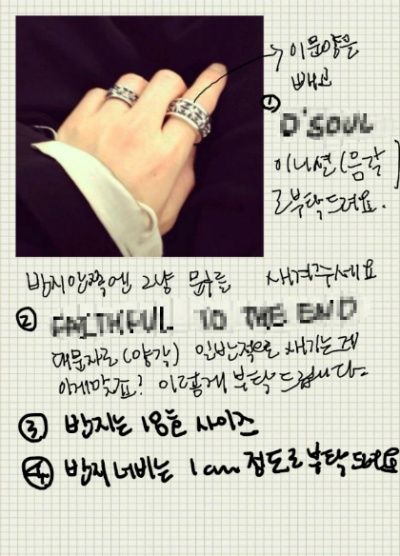 이 문양은
빼고
① D'SOUL
이니셜(음각)
로 부탁드려요.
반지 안쪽엔 그냥 문구를 새겨주세요
② FAITHFUL TO THE END
대문자로(양각) 일반적으로 새기는게
이게 맞죠? 이렇게 부탁드립니다~
③ 반지는 18호 사이즈
④ 반지 너비는 1cm 정도로 부탁드려요